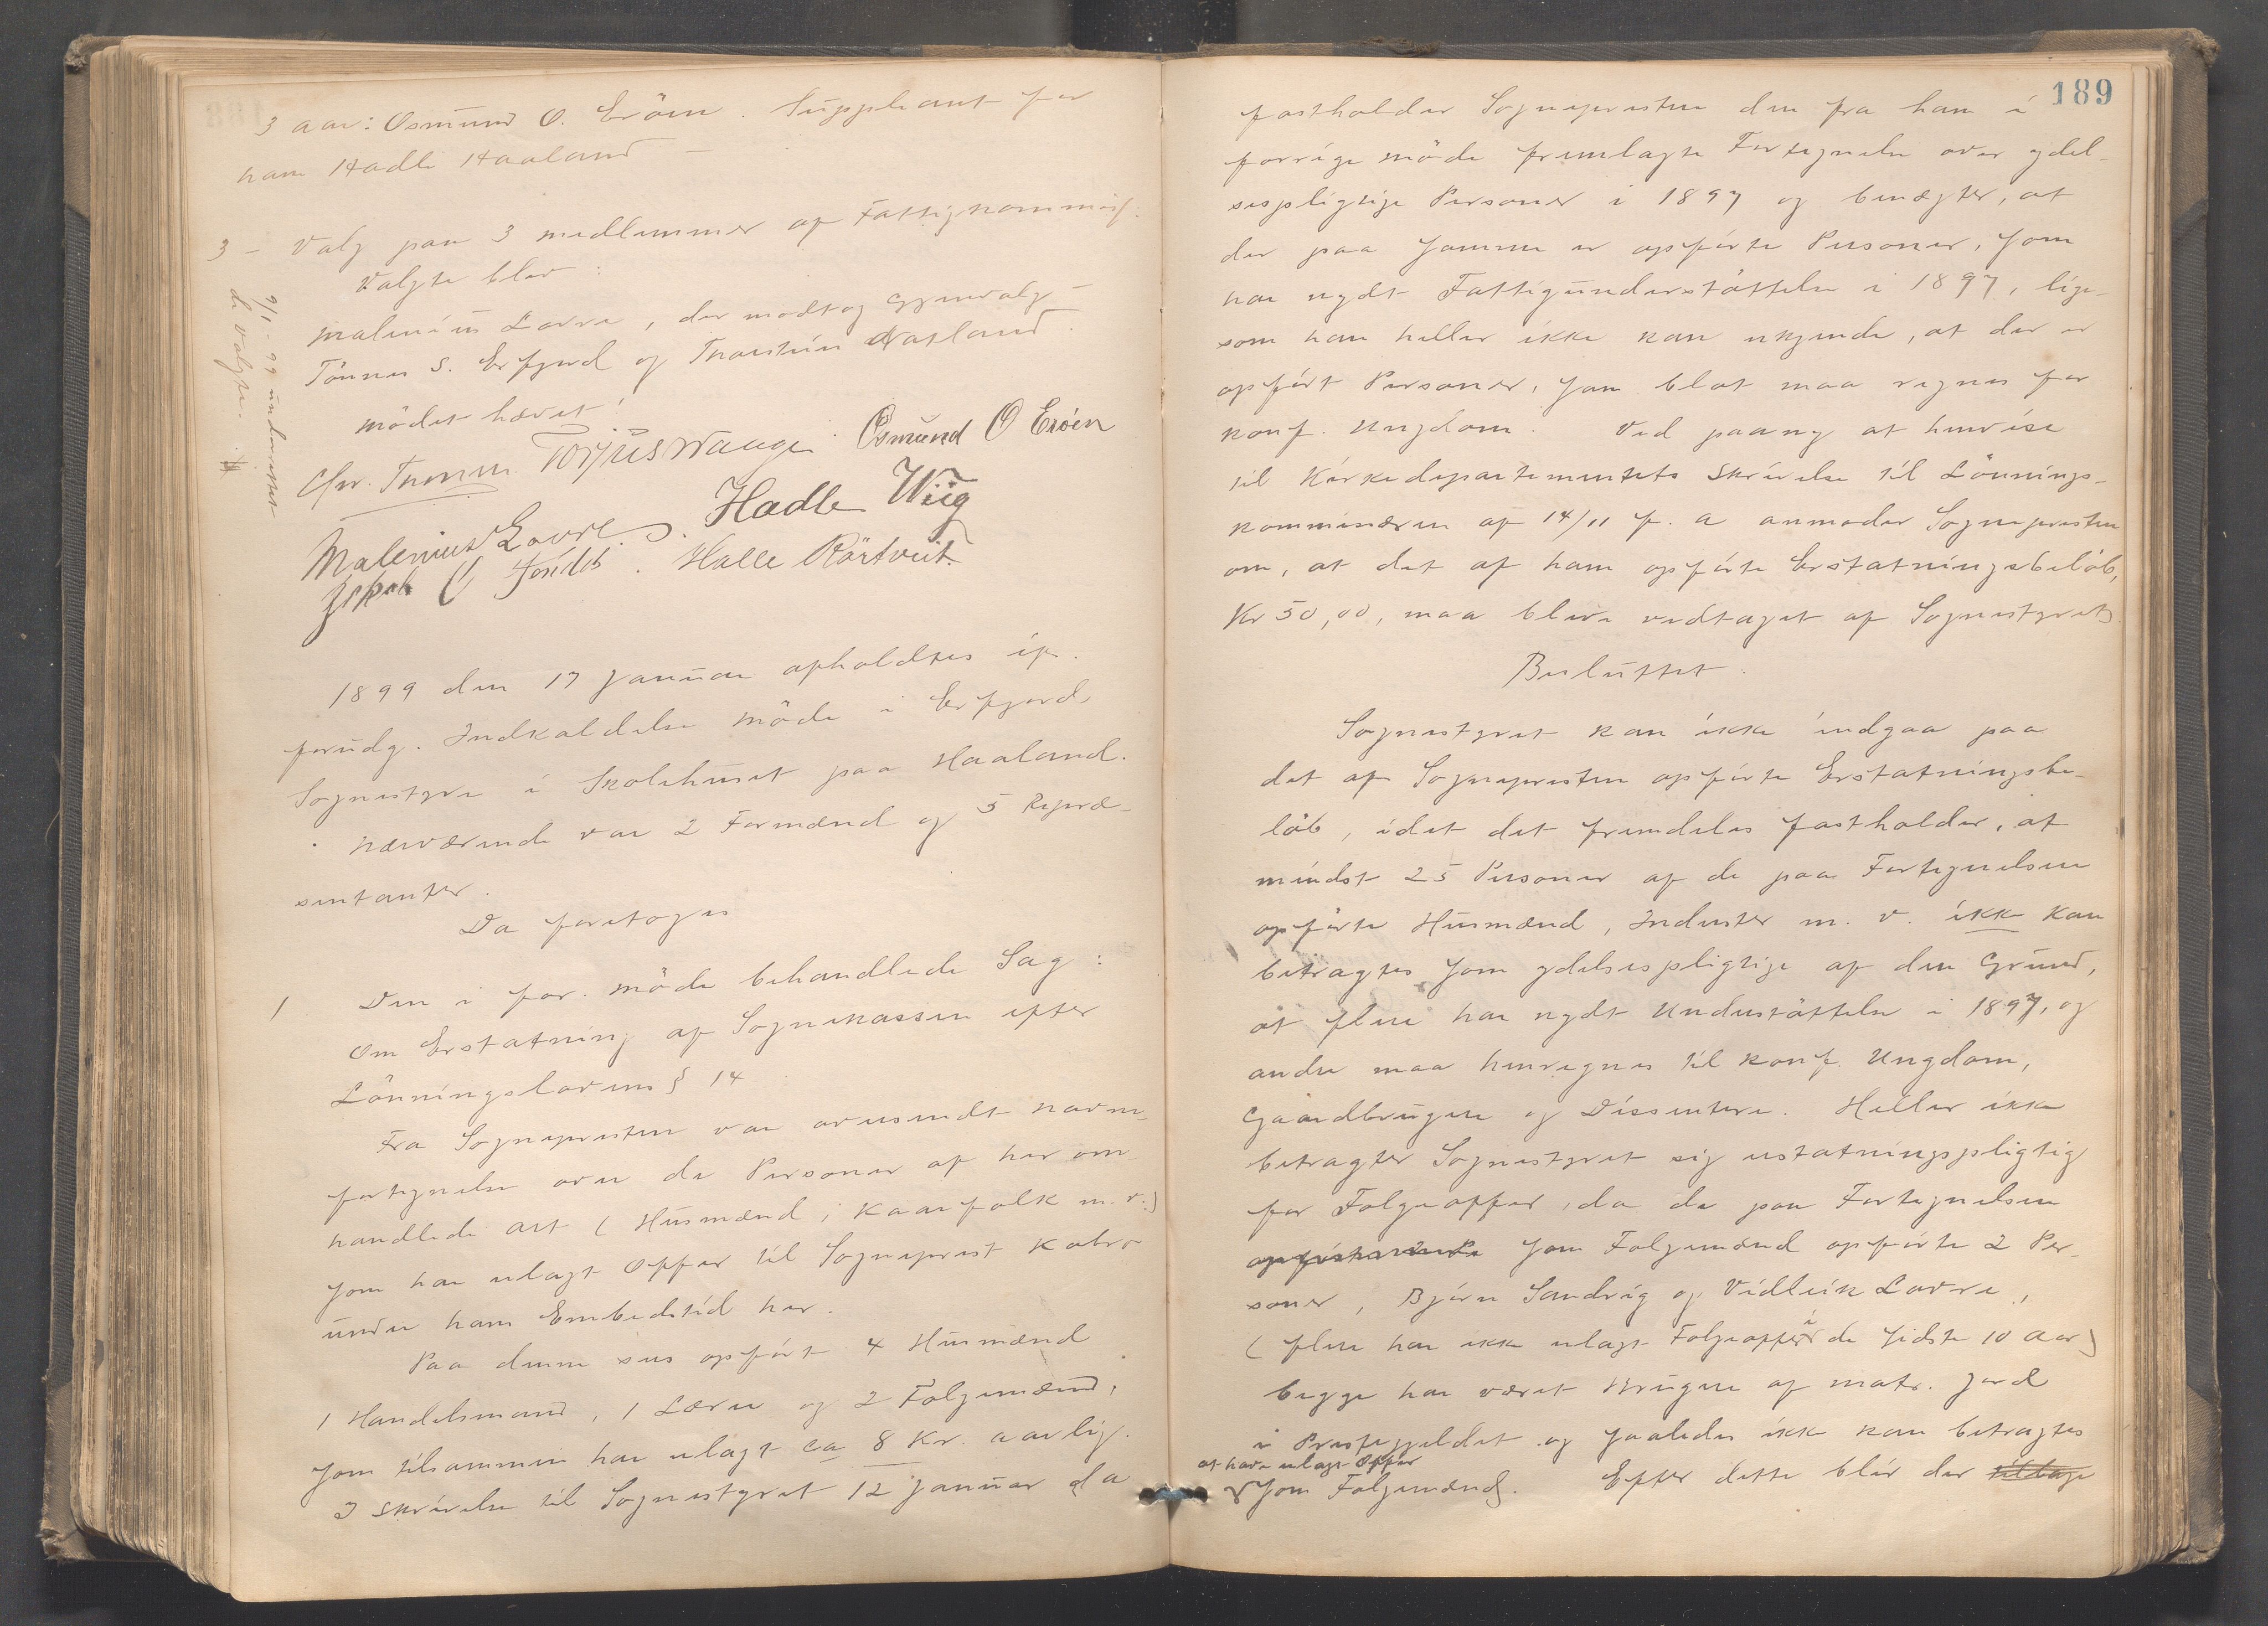 3 aar: Osmund O. Eröen. Suppleant for
ham Hadle Haaland –
3 – Valg paa 3 medlemmer af Fattigkommis.
Valgte blev:
Malenius Lovra, der modtog Gjenvalg –
Tönnes S. Erfjord og Thorstein Aasland.
mödet hævet!
9/1 – 99 underrettet
de valgte.
Chr. Thomsen Torjus Waage. Osmund O Eröen
Malenius Lovre. Hadle Wiig
Jakob O Hals. Halle Rörtveit.
1899 den 17 Januar afholdtes if.
forudg. Indkaldelse möde i Erfjord
Sognestyre i Skolehuset paa Haaland.
Nærværende var 2 Formænd og 5 Repræ-
sentanter.
Da foretoges
1 Den i for. möde behandlede Sag:
Om Erstatning af Sognekassen efter
Lönningslovens § 14
Fra Sognepresten var oversendt navne-
fortegnelse over de Personer af her om-
handlede art (Husmænd, Kaarfolk m. v.)
som har erlagt Offer til Sogneprest Kobro
under hans Embedstid her.
Paa denne sees opfört 4 Husmænd
1 Handelsmand, 1 Lærer og 2 Folgemænd,
som tilsammen har erlagt ca 8 Kr. aarlig.
I skrivelse til Sognestyret 12 Januar d a
189
fastholder Sognepresten den fra ham i
forrige möde fremlagte Fortegnelse over ydel-
sespligtige Personer i 1897 og benægter, at
der paa samme er opförte Personer, som
har nydt Fattigunderstöttelse i 1897, lige-
som han heller ikke kan erkjende, at der er
opfört Personer, som blot maa regnes for
konf. Ungdom. Ved paany at henvise
til Kirkedepartementets Skrivelse til Lönnings-
kommisæren af 14/11 f. a anmoder Sognepresten
om, at det af ham opförte Erstatningsbelöb,
Kr 50,00, maa blive vedtaget af Sognestyret.
Besluttet.
Sognestyret kan ikke indgaa paa
det af Sognepresten opförte Erstatningsbe-
löb, idet det fremdeles fastholder, at
mindst 25 Personer af de paa Fortegnelsen
opförte Husmænd, Inderster m. v. ikke kan
betragtes som ydelsespligtige af den Grund,
at flere har nydt Understöttelse i 1897, og
andre maa henregnes til konf. Ungdom,
Gaardbrugere og Dissentere. Heller ikke
betragter Sognestyret sig erstatningspligtig
for Folgeoffer, da de paa Fortegnelsen
som Folgemænd opförte 2 Per-
soner, Björn Sandvig og Vidleik Lovra,
(flere har ikke erlagt Folgeoffer i de sidste 10 aar)
begge har været Brugere af matr. jord
i Prestegjeldet og saaledes ikke kan betragtes
at have erlagt Offer
som Folgemænd. Efter dette blir der tilbage